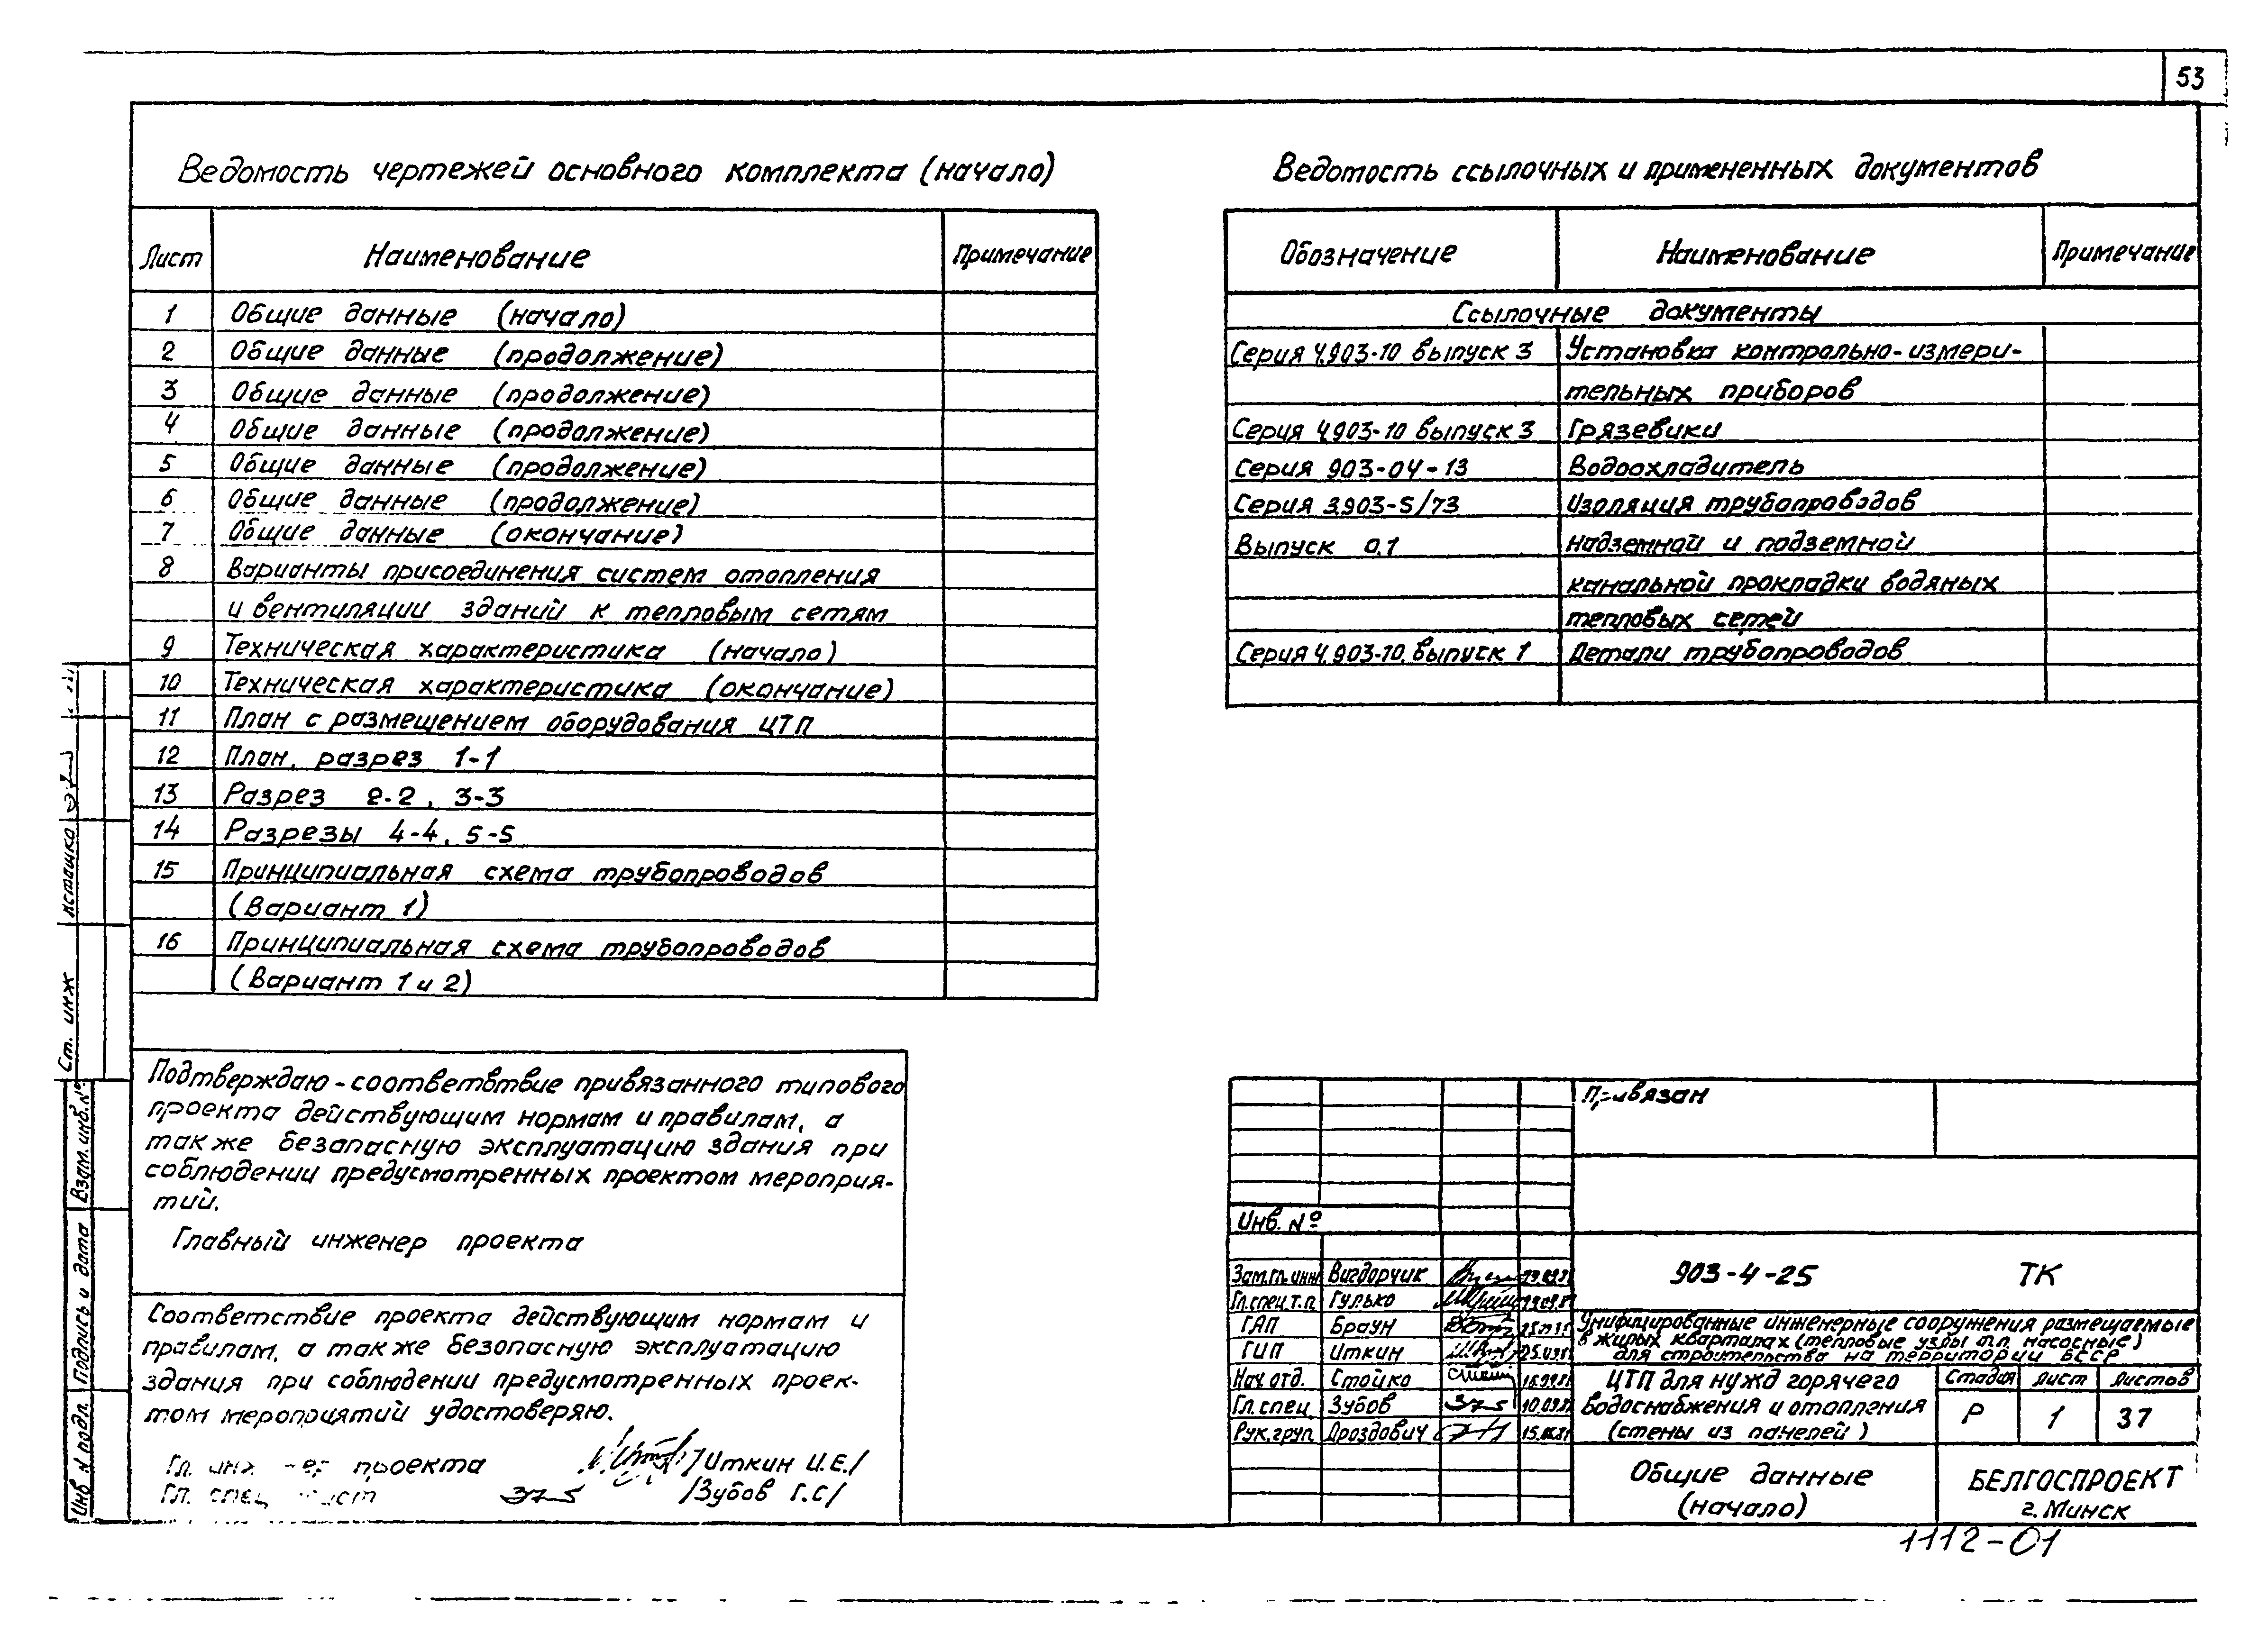 53
Ведомость чертежей основного комплекта (начало)
Лист Наименование Примечание
1 Общие данные (начало)
2 Общие данные (продолжение)
3 Общие данные (продолжение)
4 Общие данные (продолжение)
5 Общие данные (продолжение)
6 Общие данные (продолжение)
7 Общие данные (окончание)
8 Варианты присоединения систем отопления
и вентиляции зданий к тепловым сетям
9 Техническая характеристика (начало)
10 Техническая характеристика (окончание)
11 План с размещением оборудования ЦТП
12 План, разрез 1-1
13 Разрез 2-2, 3-3
14 Разрезы 4-4, 5-5
15 Принципиальная схема трубопроводов
(Вариант 1)
16 Принципиальная схема трубопроводов
(Вариант 1 и 2)
Ведомость ссылочных и примененных документов
Обозначение Наименование Примечание
Ссылочные документы
Серия 4.903-10 выпуск 3 Установка контрольно-измери-
тельных приборов
Серия 4.903-10 выпуск 3 Грязевики
Серия 903-04-13 Водоохладитель
Серия 3.903-5/73 Изоляция трубопроводов
Выпуск 0.1 надземной и подземной
канальной прокладки водяных
тепловых сетей
Серия 4.903-10. выпуск 1 Детали трубопроводов
Подтверждаю-соответвтвие привязанного типового
проекта действующим нормам и правилам, а
также безопасную эксплуатацию здания при
соблюдении предусмотренных проектом мероприя-
тий.
Главный инженер проекта
Соответствие проекта действующим нормам и
правилам, а также безопасную эксплуатацию
здания при соблюдении предусмотренных проек-
том мероприятий удостоверяю.
Гл. инж проекта /Иткин И.Е./
Гл. спец /Зубов Г.С/
Ст. инж
Взам. инв. №
Подпись и дата
Инв N подл.
Привязан
Инв. №
Зам.гл.инж Вигдорчик
Гл.спец.т.п. Гулько
ГАП Браун
ГИП Иткин
Нач. отд. Стойко
Гл. спец. Зубов 10.09.81
Рук.груп Дроздович
903-4-25 ТК
Унифицированные инженерные сооружения размещаемые
в жилых кварталах (тепловые узлы тп. насосные)
для строительства на территории БССР
ЦТП для нужд горячего
водоснабжения и отопления
(стены из панелей)
Стадия Лист Листов
Р 1 37
Общие данные
(начало)
БЕЛГОСПРОЕКТ
г. Минск
1112-01